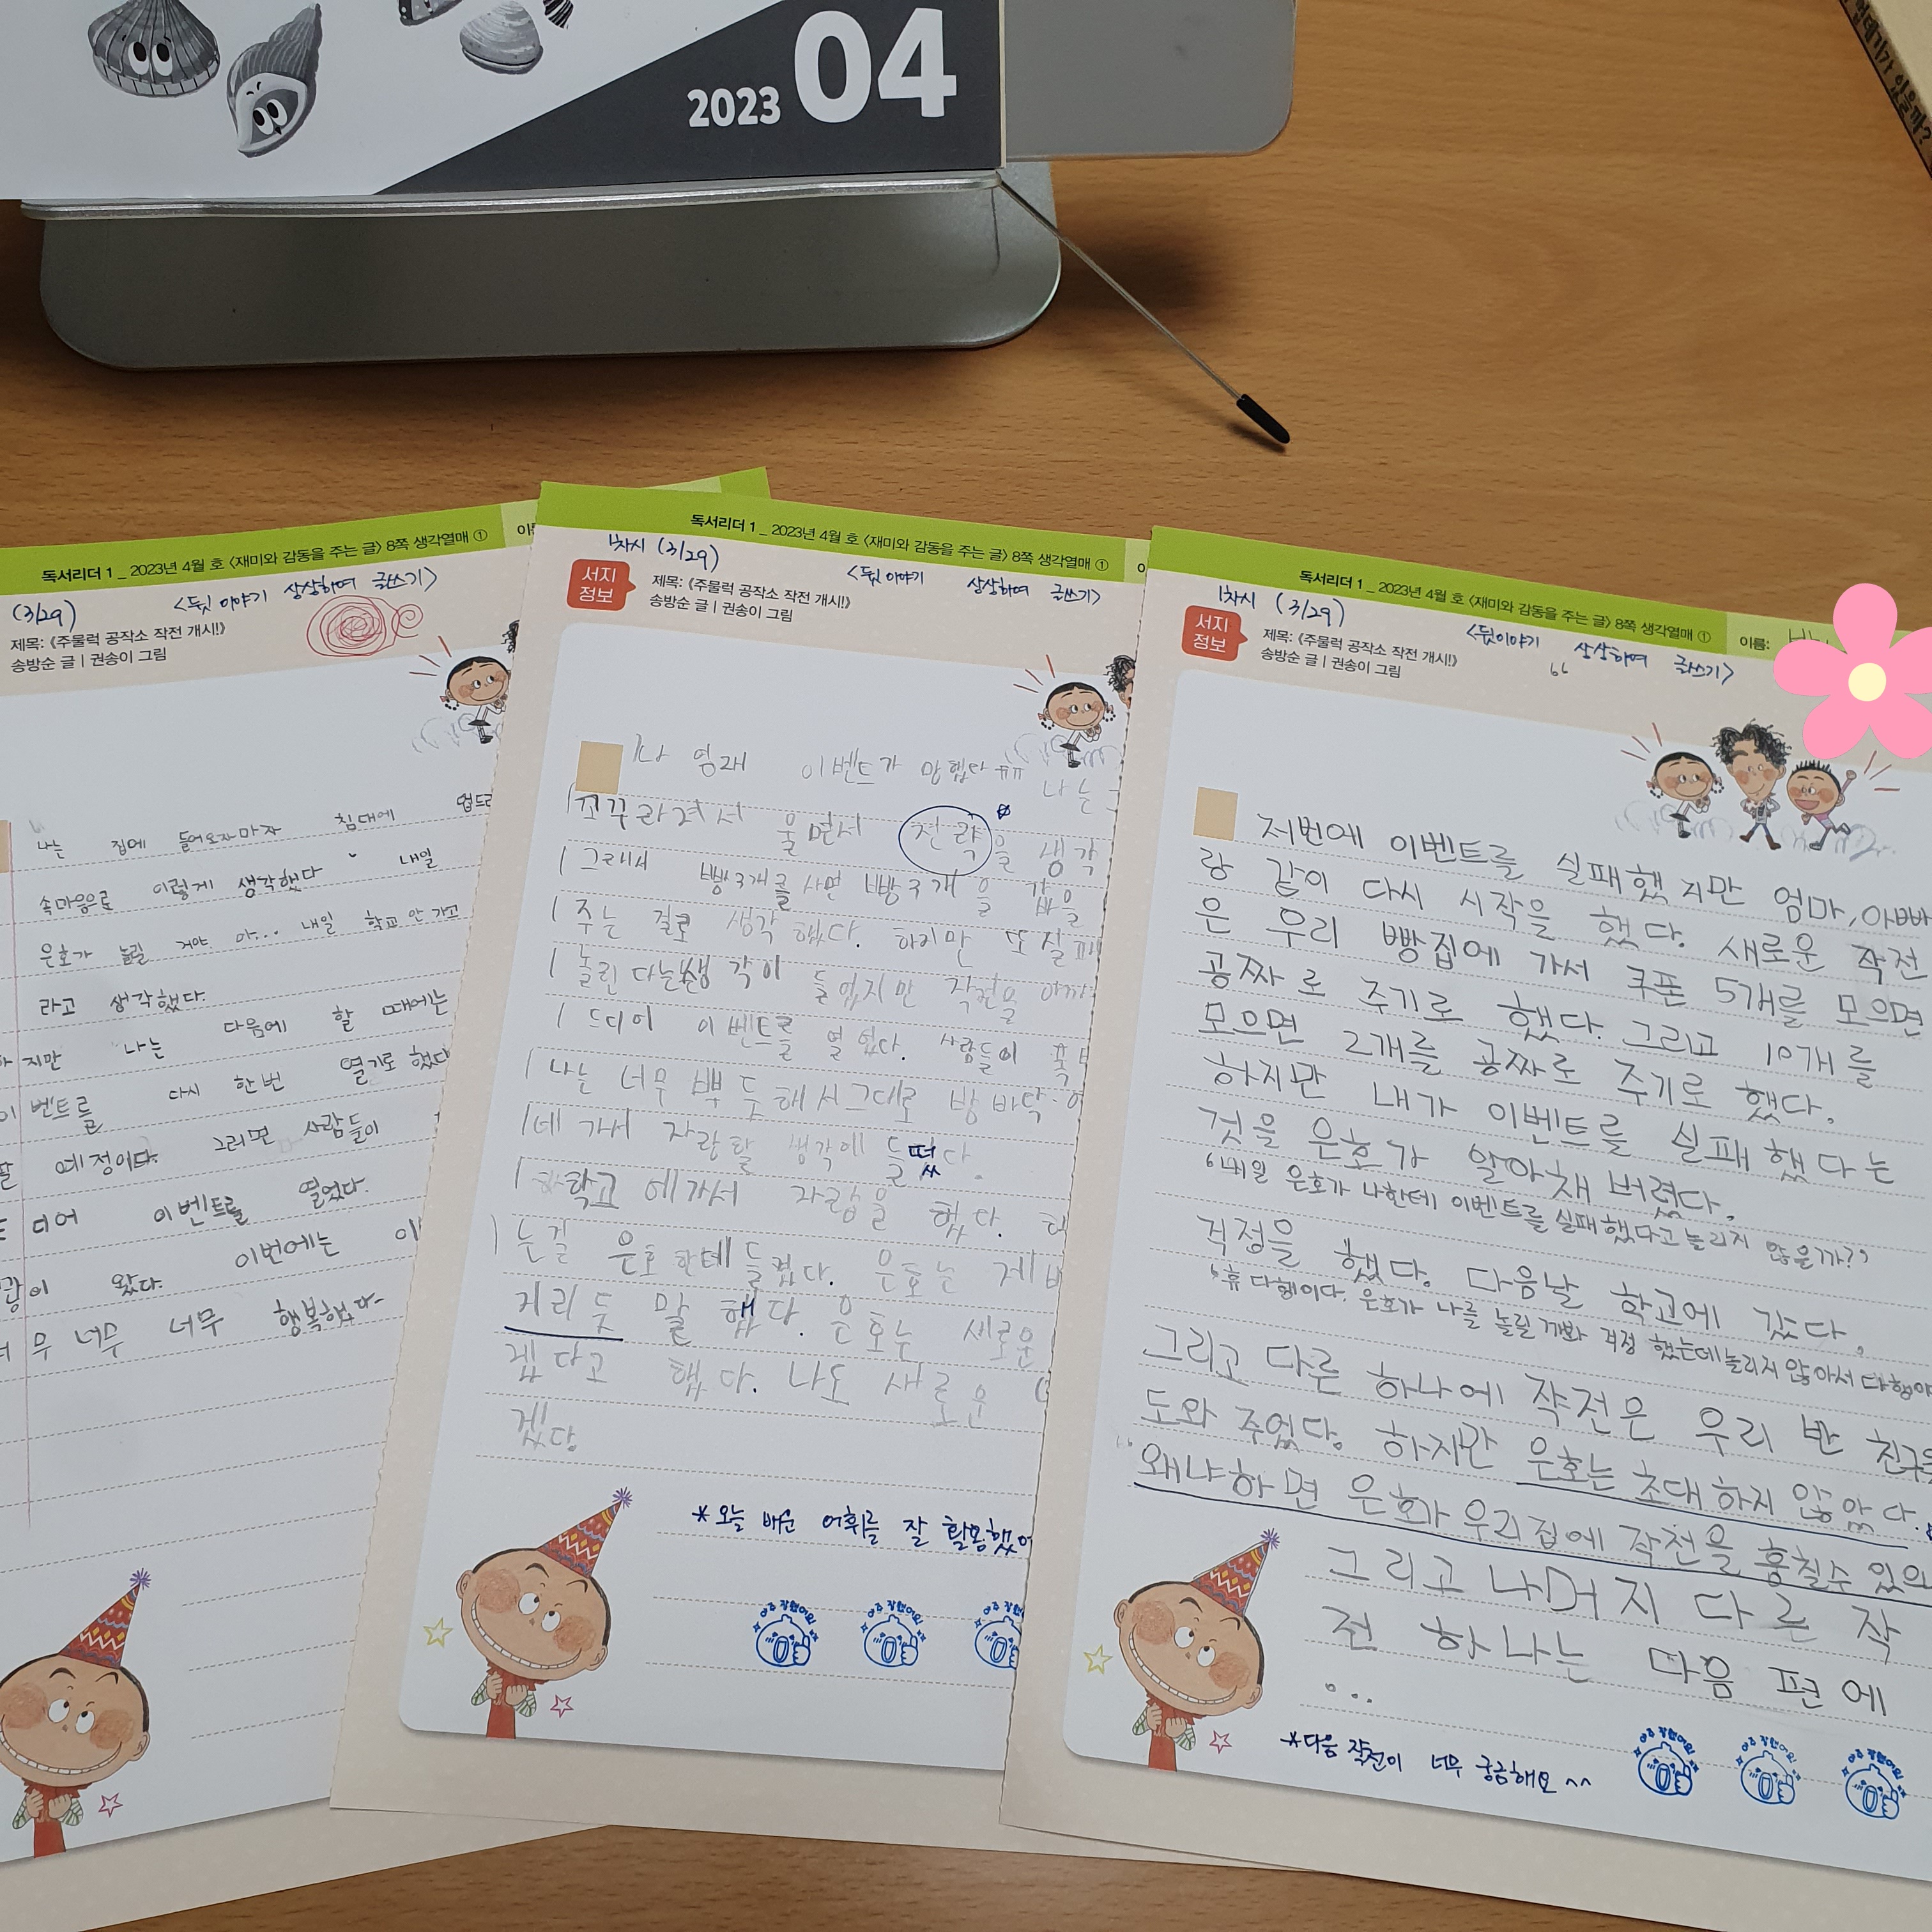 2023 04
독서리더 1 _ 2023년 4월 호 〈재미와 감동을 주는 글〉 8쪽 생각열매 ①
(3/29)
<뒷이야기 상상하여 글쓰기>
제목: 《주물럭 공작소 작전 개시!》
송방순 글 | 권송이 그림
나는 집에 들어오자마자 침대에 엎드
속마음으로 이렇게 생각했다 내일
은호가 놀릴 거야. 아... 내일 학교 안 가고
라고 생각했다.
지만 나는 다음에 할 때에는
이벤트를 다시 한번 열기로 했다
할 예정이다. 그러면 사람들이
드디어 이벤트를 열었다.
왔다. 이번에는
너무 너무 너무 행복했다.
독서리더 1 _ 2023년 4월 호 〈재미와 감동을 주는 글〉 8쪽 생각열매 ①
1차시 (3/29)
<뒷이야기 상상하여 글쓰기>
서지
정보
제목: 《주물럭 공작소 작전 개시!》
송방순 글 | 권송이 그림
이벤트가 망했다 ㅠㅠ 나는
울면서 전략을 생각
그래서 빵 3개를 사면 빵 3개
주는 걸로 생각했다. 하지만 또 실패
놀린다는 생각이 들었지만 작전을
드디어 이벤트를 열었다. 사람들이
나는 너무 뿌듯해서 그대로 방바닥
네 가서 자랑할 생각에 들떴다.
학교에 가서 자랑을 했다.
는걸 은호한테 들켰다. 은호는
말했다. 은호는 새로운
겠다고 했다. 나도 새로운
겠다
*오늘 배운 어휘를 잘 활용했어
참 잘했어요!
독서리더 1 _ 2023년 4월 호 〈재미와 감동을 주는 글〉 8쪽 생각열매 ①
이름:
1차시 (3/29)
<뒷이야기 상상하여 글쓰기>
서지
정보
제목: 《주물럭 공작소 작전 개시!》
송방순 글 | 권송이 그림
저번에 이벤트를 실패했지만 엄마, 아빠
랑 같이 다시 시작을 했다. 새로운 작전
은 우리 빵집에 가서 쿠폰 5개를 모으면
공짜로 주기로 했다. 그리고 10개를
모으면 2개를 공짜로 주기로 했다.
하지만 내가 이벤트를 실패했다는
것을 은호가 알아채 버렸다.
'내일 은호가 나한테 이벤트를 실패했다고 놀리지 않을까?'
걱정을 했다. 다음날 학교에 갔다.
'휴 다행이다. 은호가 나를 놀릴까봐 걱정했는데 놀리지 않아서 다행이
그리고 다른 하나에 작전은 우리 반 친구
도와 주었다. 하지만 은호는 초대하지 않았다.
왜냐하면 은호가 우리집에 작전을 훔칠수 있
그리고 나머지 다른 작
전 하나는 다음 편에
...
*다음 작전이 너무 궁금해요^^